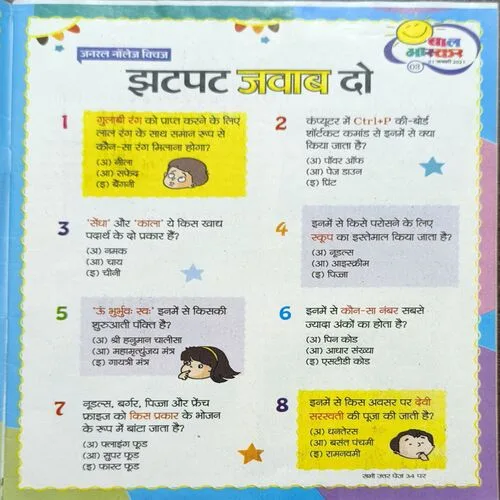 जनरल नॉलेज क्विज
बाल
भास्कर
03
झटपट जवाब दो
1 गुलाबी रंग को प्राप्त करने के लिए
लाल रंग के साथ समान रूप से
कौन-सा रंग मिलाना होगा?
(अ) नीला
(आ) सफेद
(इ) बैंगनी
2 कंप्यूटर में Ctrl+P की-बोर्ड
शॉर्टकट कमांड से इनमें से क्या
किया जाता है?
(अ) पॉवर ऑफ
(आ) पेज डाउन
(इ) प्रिंट
3 'सेंधा' और 'काला' ये किस खाद्य
पदार्थ के दो प्रकार हैं?
(अ) नमक
(आ) चाय
(इ) चीनी
4 इनमें से किसे परोसने के लिए
स्कूप का इस्तेमाल किया जाता है?
(अ) नूडल्स
(आ) आइस्क्रीम
(इ) पिज्जा
5 'ऊं भुर्भुवः स्वः' इनमें से किसकी
शुरुआती पंक्ति है?
(अ) श्री हनुमान चालीसा
(आ) महामृत्युंजय मंत्र
(इ) गायत्री मंत्र
6 इनमें से कौन-सा नंबर सबसे
ज्यादा अंकों का होता है?
(अ) पिन कोड
(आ) आधार संख्या
(इ) एसटीडी कोड
7 नूडल्स, बर्गर, पिज्जा और फ्रेंच
फ्राइज को किस प्रकार के भोजन
के रूप में बांटा जाता है?
(अ) फ्लाइंग फूड
(आ) सुपर फूड
(इ) फास्ट फूड
8 इनमें से किस अवसर पर देवी
सरस्वती की पूजा की जाती है?
(अ) धनतेरस
(आ) बसंत पंचमी
(इ) रामनवमी
सभी उत्तर पेज 34 पर